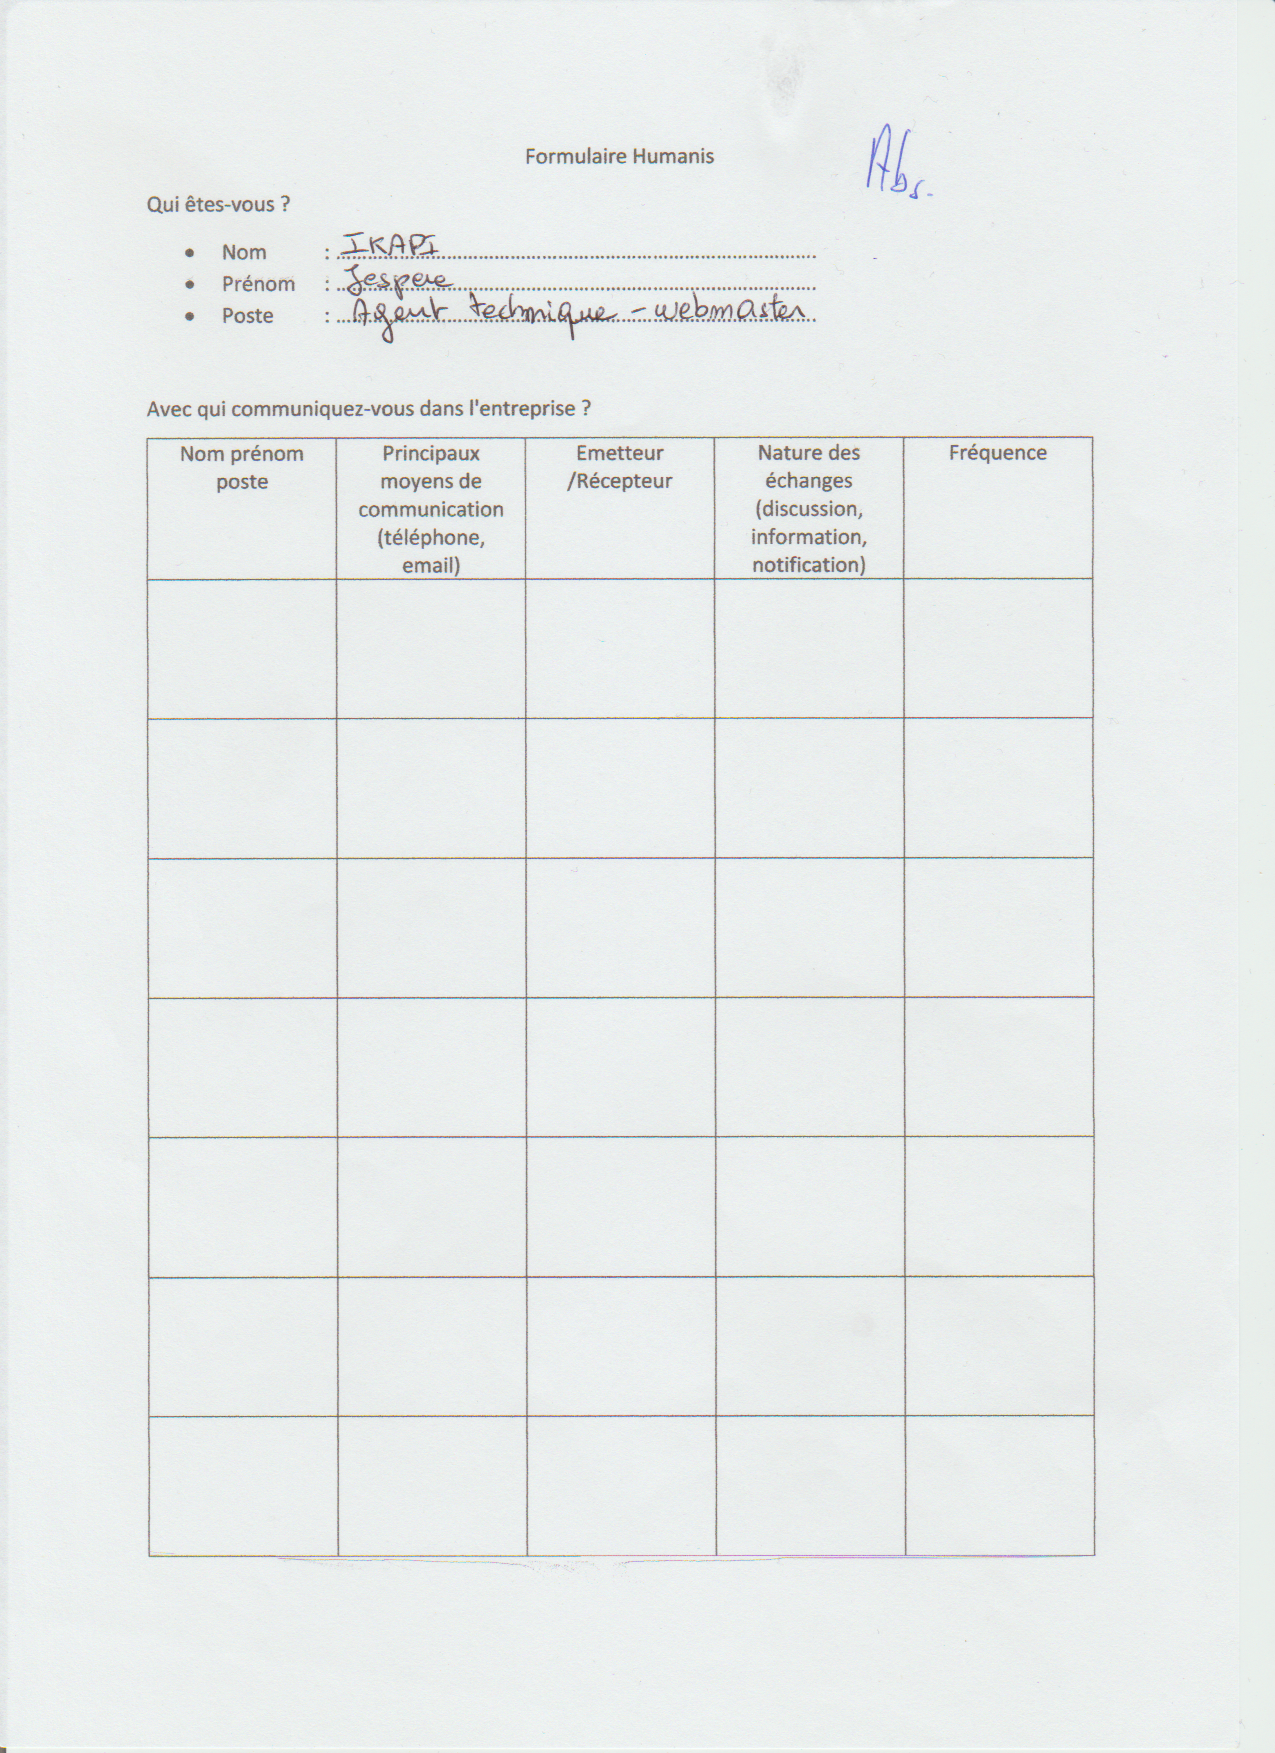 Formulaire Humanis
Abs.
Qui êtes-vous ?
• Nom : IKAPI
• Prénom : Jespere
• Poste : Agent technique - webmaster
Avec qui communiquez-vous dans l'entreprise ?
Nom prénom
poste
Principaux
moyens de
communication
(téléphone,
email)
Emetteur
/Récepteur
Nature des
échanges
(discussion,
information,
notification)
Fréquence